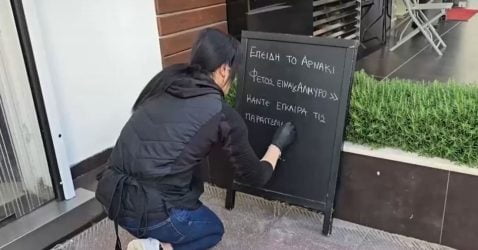 ΕΠΕΙΔΗ ΤΟ ΑΡΝΑΚΙ
ΦΕΤΟΣ ΕΙΝΑΙ «ΑΛΜΥΡΟ»
ΚΑΝΤΕ ΕΓΚΑΙΡΑ ΤΙΣ
ΠΑΡΑΓΓΕΛΙ